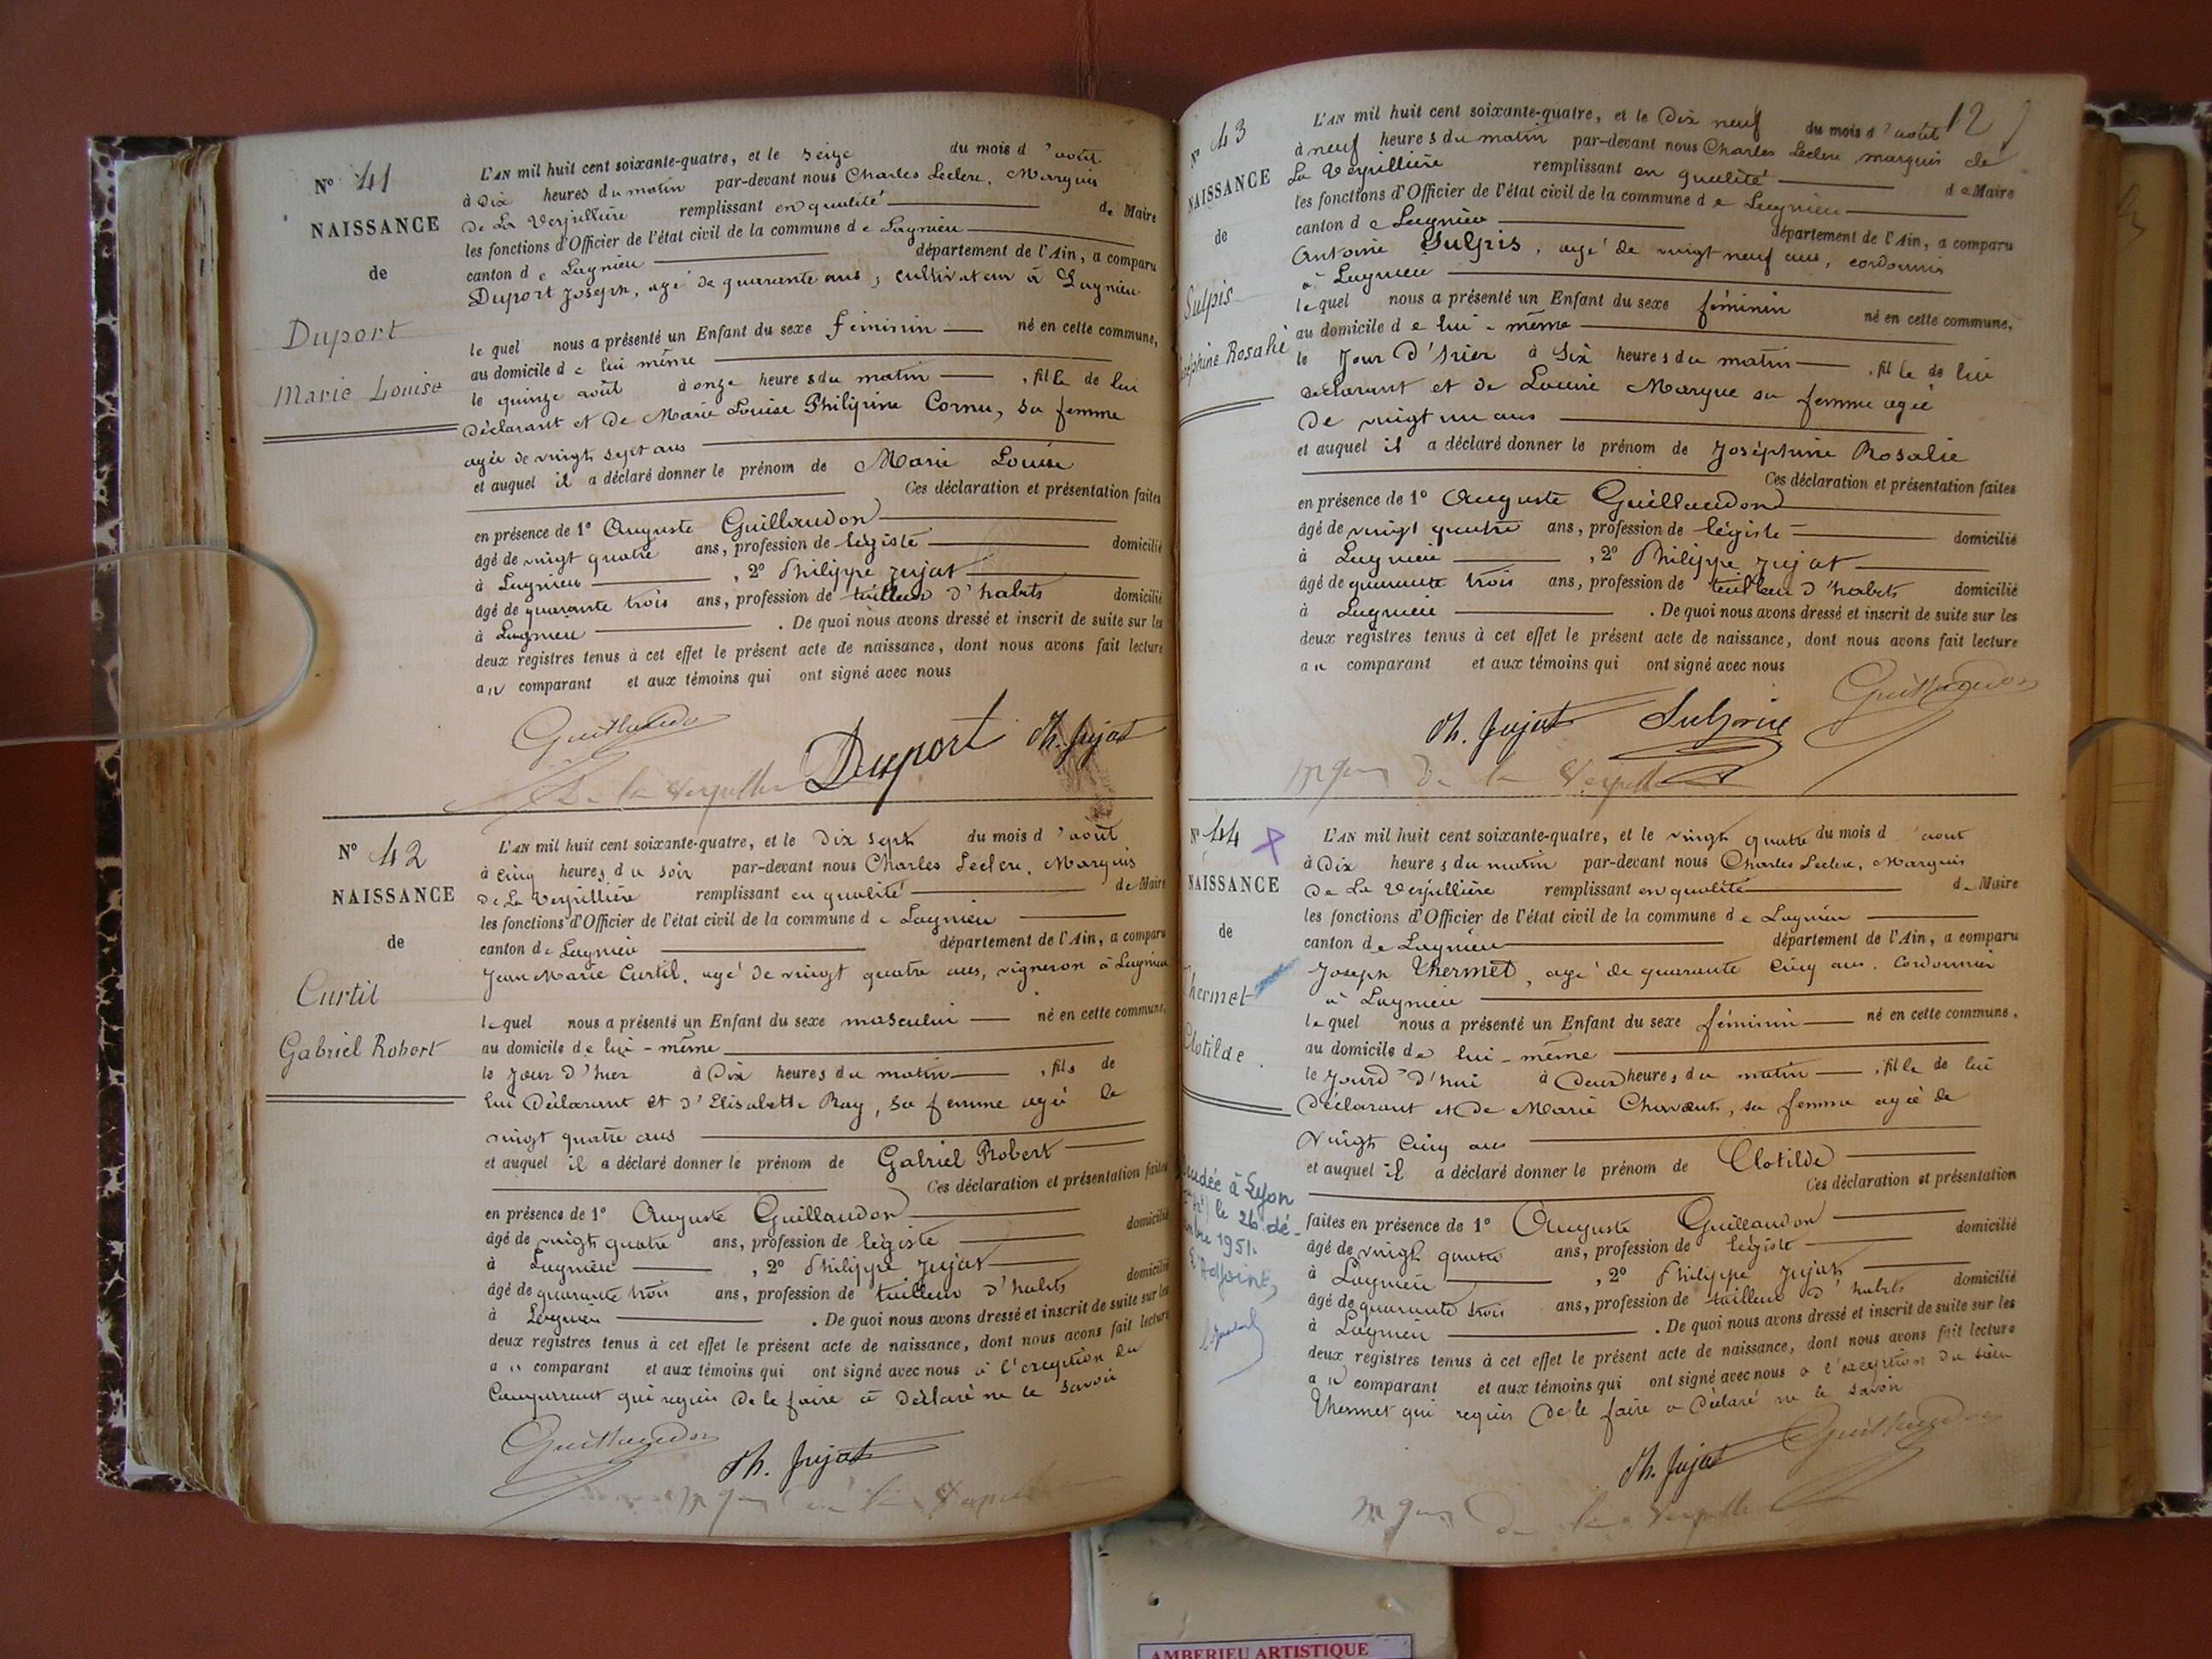 N° 41
NAISSANCE
de
Duport
Marie Louise
L'AN mil huit cent soixante-quatre, et le seize du mois d'août
à dix heures du matin par-devant nous Charles Leclere, Marquis
De La Verpillière remplissant en qualité de Maire
les fonctions d'Officier de l'état civil de la commune de Lagnieu
canton de Lagnieu département de l'Ain, a comparu
Duport Joseph, agé de quarante ans, cultivateur à Lagnieu
lequel nous a présenté un Enfant du sexe féminin né en cette commune,
au domicile de lui même
le quinze août à onze heures du matin , fille de lui
déclarant et de Marie Louise Philipine Cornu, sa femme
agée de vingt sept ans
et auquel il a déclaré donner le prénom de Marie Louise
Ces déclaration et présentation faites
en présence de 1° Auguste Guillaudon
âgé de vingt quatre ans, profession de légiste domicilié
à Lagnieu , 2° Philippe Jujat
âgé de quarante trois ans, profession de tailleur d'habits domicilié
à Lagnieu . De quoi nous avons dressé et inscrit de suite sur les
deux registres tenus à cet effet le présent acte de naissance, dont nous avons fait lecture
au comparant et aux témoins qui ont signé avec nous
Guillaudon
Duport Ph. Jujat
De la Verpillière
N° 42
NAISSANCE
de
Curtil
Gabriel Robert
L'AN mil huit cent soixante-quatre, et le dix sept du mois d'août
à cinq heures du soir par-devant nous Charles Leclere, Marquis
De La Verpillière remplissant en qualité de Maire
les fonctions d'Officier de l'état civil de la commune de Lagnieu
canton de Lagnieu département de l'Ain, a comparu
Jean Marie Curtil, agé de vingt quatre ans, vigneron à Lagnieu
lequel nous a présenté un Enfant du sexe masculin né en cette commune,
au domicile de lui-même
le jour d'hier à dix heures du matin , fils de
lui déclarant et d'Elisabeth Ray, sa femme agée de
vingt quatre ans
et auquel il a déclaré donner le prénom de Gabriel Robert
Ces déclaration et présentation faites
en présence de 1° Auguste Guillaudon domicilié
âgé de vingt quatre ans, profession de légiste
à Lagnieu , 2° Philippe Jujat
âgé de quarante trois ans, profession de tailleur d'habits domicilié
à Lagnieu . De quoi nous avons dressé et inscrit de suite sur les
deux registres tenus à cet effet le présent acte de naissance, dont nous avons fait lecture
au comparant et aux témoins qui ont signé avec nous à l'exception du
Comparant qui requis de le faire a déclaré ne le savoir
Guillaudon
Ph. Jujat
12
N° 43
NAISSANCE
de
Sulpis
Joséphine Rosalie
L'AN mil huit cent soixante-quatre, et le Dix neuf du mois d'août
à neuf heures du matin par-devant nous Charles Leclere marquis de
La Verpillière remplissant en qualité de Maire
les fonctions d'Officier de l'état civil de la commune de Lagnieu
canton de Lagnieu département de l'Ain, a comparu
Antoine Sulpis, agé de vingt neuf ans, cordonnier
à Lagnieu
lequel nous a présenté un Enfant du sexe féminin né en cette commune,
au domicile de lui-même
le Jour d'hier à six heures du matin , fille de lui
déclarant et de Louise Margue sa femme agée
de vingt un ans
et auquel il a déclaré donner le prénom de Joséphine Rosalie
Ces déclaration et présentation faites
en présence de 1° Auguste Guillaudon
âgé de vingt quatre ans, profession de légiste domicilié
à Lagnieu , 2° Philippe Jujat
âgé de quarante trois ans, profession de tailleur d'habits domicilié
à Lagnieu . De quoi nous avons dressé et inscrit de suite sur les
deux registres tenus à cet effet le présent acte de naissance, dont nous avons fait lecture
au comparant et aux témoins qui ont signé avec nous
Guillaudon
Ph. Jujat
de la Verpillière
N° 44
NAISSANCE
de
Thermet
Clotilde
L'AN mil huit cent soixante-quatre, et le vingt quatre du mois d'aout
à Dix heures du matin par-devant nous Charles Leclere, Marquis
De La Verpillière remplissant en qualité de Maire
les fonctions d'Officier de l'état civil de la commune de Lagnieu
canton de Lagnieu département de l'Ain, a comparu
Joseph Thermet, agé de quarante cinq ans, Cordonnier
à Lagnieu
lequel nous a présenté un Enfant du sexe féminin né en cette commune,
au domicile de lui-même
le Jourd'hui à Deux heures du matin , fille de lui
déclarant et de Marie Chavent, sa femme agée de
Vingt cinq ans
et auquel il a déclaré donner le prénom de Clotilde
Ces déclaration et présentation
faites en présence de 1° Auguste Guillaudon domicilié
âgé de vingt quatre ans, profession de légiste
à Lagnieu , 2° Philippe Jujat domicilié
âgé de quarante trois ans, profession de tailleur d'habits
à Lagnieu . De quoi nous avons dressé et inscrit de suite sur les
deux registres tenus à cet effet le présent acte de naissance, dont nous avons fait lecture
au comparant et aux témoins qui ont signé avec nous à l'exception du sieur
Thermet qui requis de le faire a déclaré ne le savoir
à Lyon
le 26 dé-
1951.
L'Adjoint,
Ph. Jujat Guillaudon
de la Verpillière
AMBERIEU ARTISTIQUE